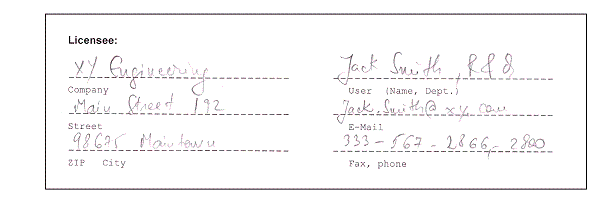 Licensee:
XY Engineering
Company
Main Street 192
Street
98675 Maintown
ZIP City
Jack Smith, R&D
User (Name, Dept.)
Jack.Smith@xy.com
E-Mail
333-567-2866,-2800
Fax, phone